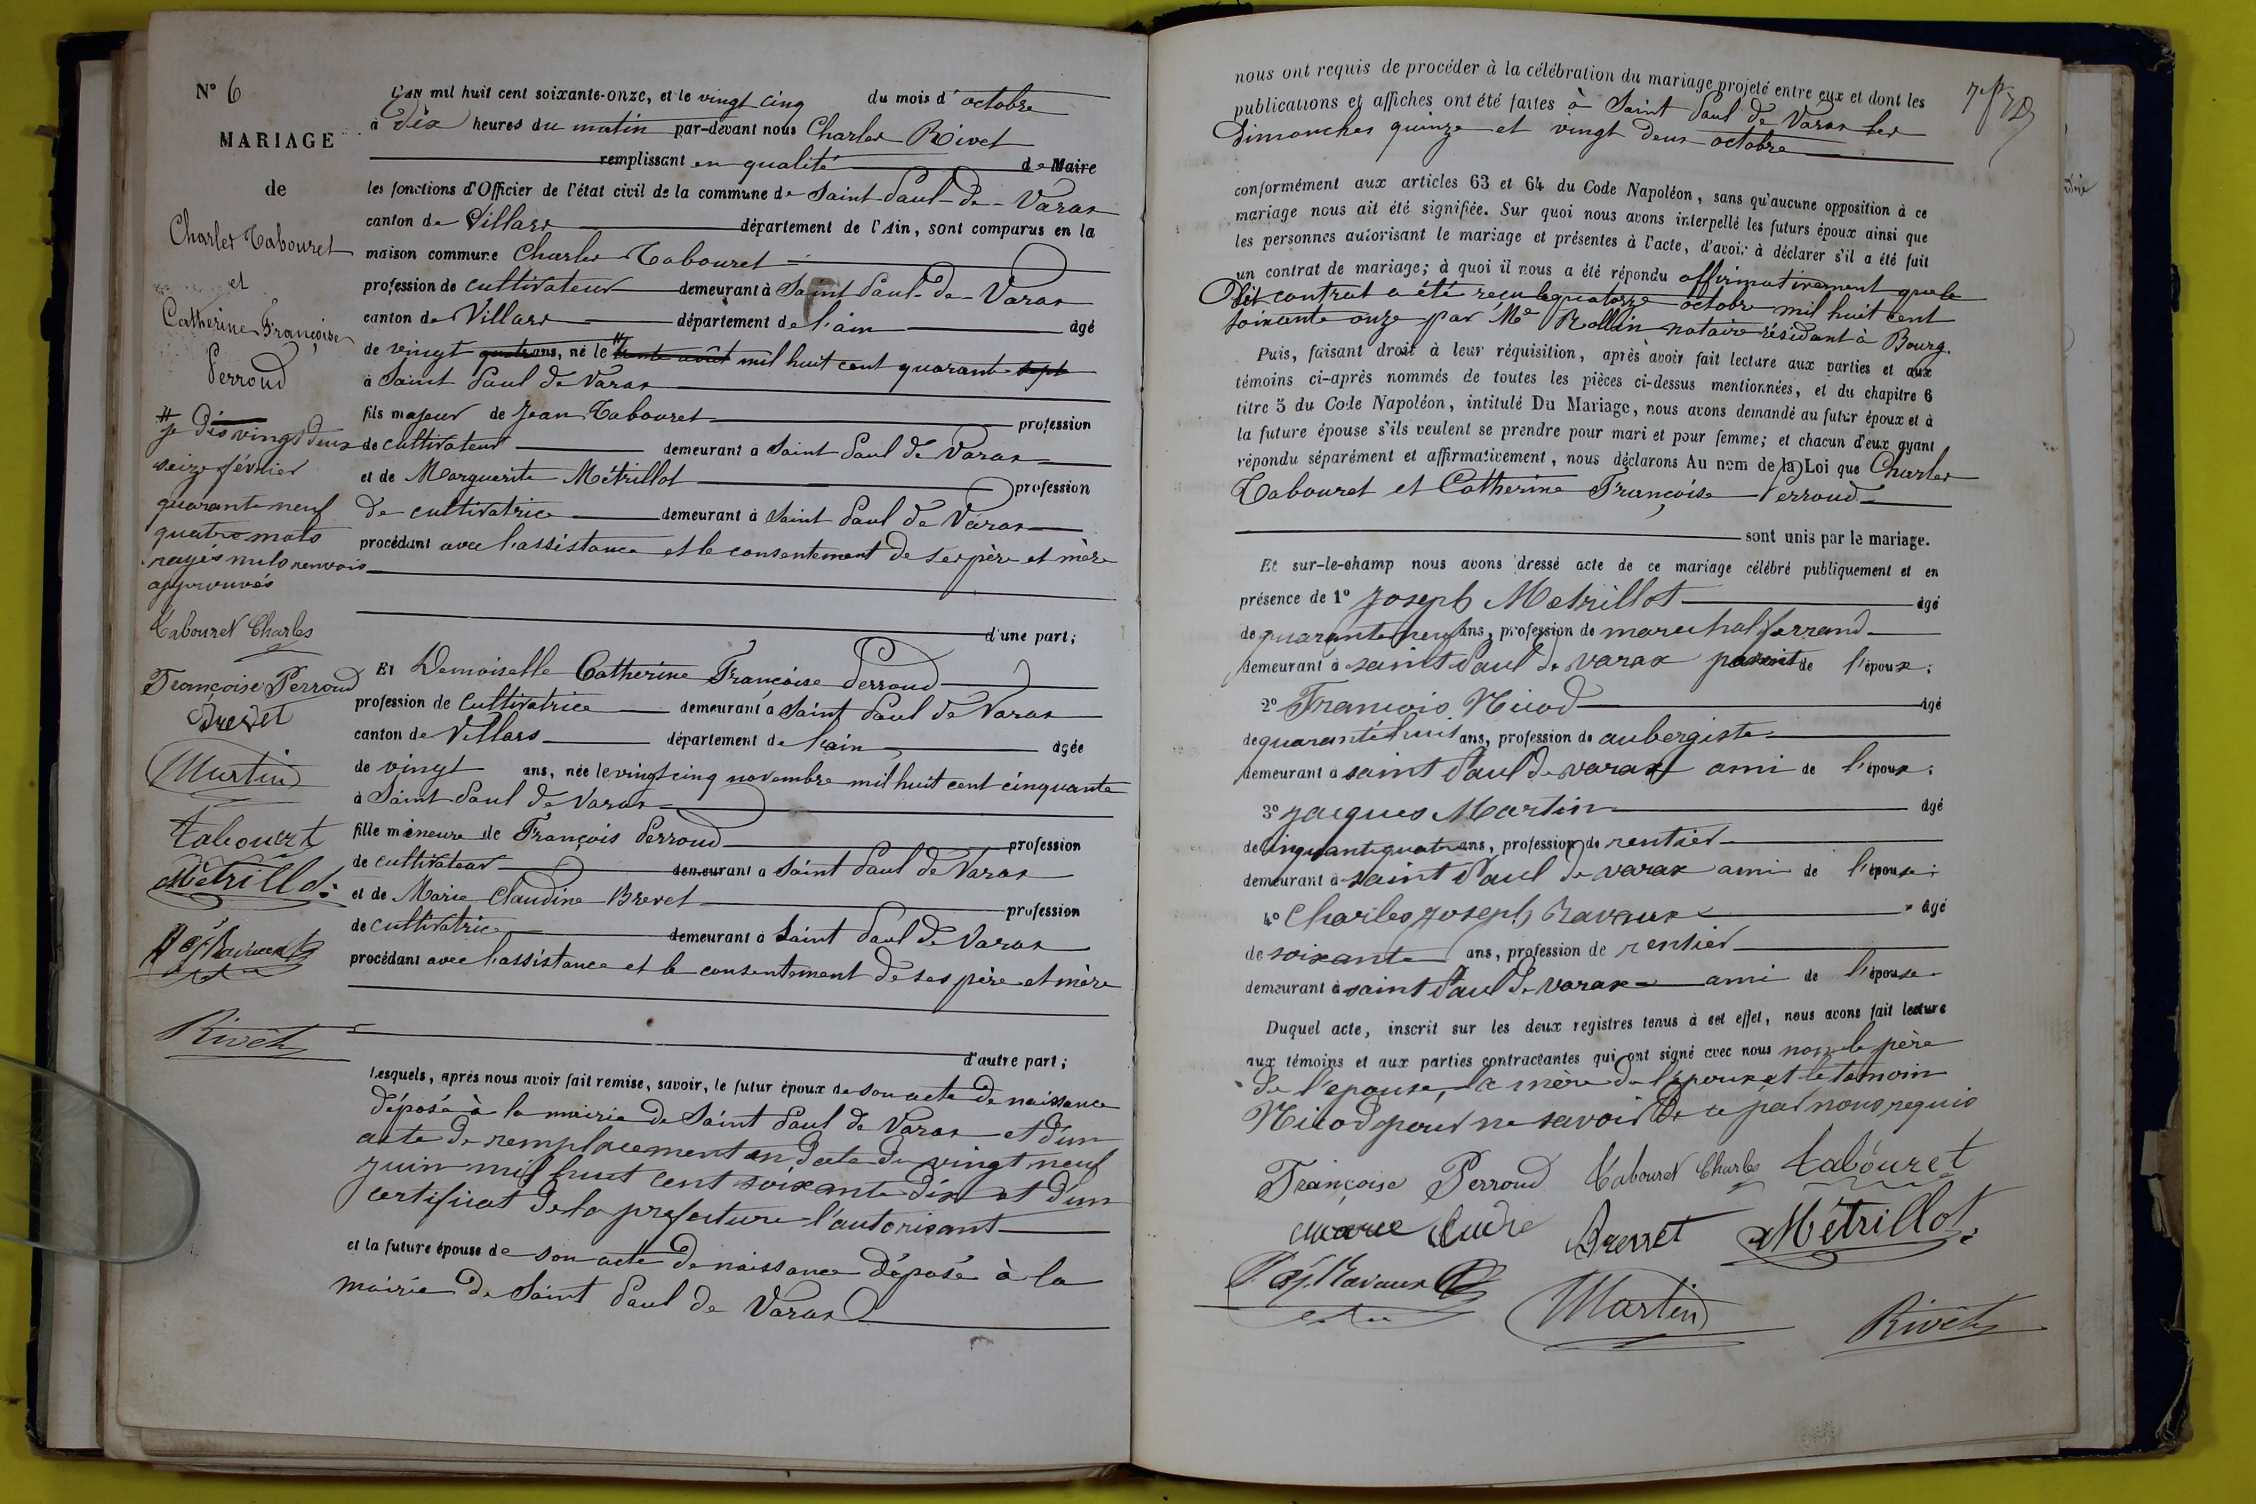 N° 6
MARIAGE
de
Charles Tabouret
et
Catherine Françoise
Perroud
# je dis vingt deux
seize février
quarante neuf
quatre mots
rayés nuls renvois
approuvés
Tabouret Charles
Françoise Perroud
Brevet
Martin
Tabouret
Métrillot
Ravaux
Rivet
L'AN mil huit cent soixante-onze, et le vingt cinq du mois d'octobre
à dix heures du matin par-devant nous Charles Rivet
remplissant en qualité de Maire
les fonctions d'Officier de l'état civil de la commune de Saint Paul-de-Varax
canton de Villars département de l'Ain, sont comparus en la
maison commune Charles Tabouret
profession de cultivateur demeurant à Saint Paul-de-Varax
canton de Villars département de l'ain âgé
de vingt quatre ans, né le # trente août mil huit cent quarante sept
à Saint Paul de Varax
fils majeur de Jean Tabouret profession
de cultivateur demeurant à Saint Paul de Varax
et de Marguerite Métrillot profession
de cultivatrice demeurant à Saint Paul de Varax
procédant avec l'assistance et le consentement de ses père et mère
d'une part;
Et Demoiselle Catherine Françoise Perroud
profession de cultivatrice demeurant à Saint Paul de Varax
canton de Villars département de l'ain âgée
de vingt ans, née le vingt cinq novembre mil huit cent cinquante
à Saint Paul de Varax
fille mineure de François Perroud profession
de cultivateur demeurant à Saint Paul de Varax
et de Marie Claudine Brevet profession
de cultivatrice demeurant à Saint Paul de Varax
procédant avec l'assistance et le consentement de ses père et mère
d'autre part;
Lesquels, après nous avoir fait remise, savoir, le futur époux de son acte de naissance
déposé à la mairie de Saint Paul de Varax et d'un
acte de remplacement en date du vingt neuf
juin mil huit cent soixante dix et d'un
certificat de la préfecture l'autorisant
et la future épouse de son acte de naissance déposé à la
mairie de Saint Paul de Varax
nous ont requis de procéder à la célébration du mariage projeté entre eux et dont les
publications et affiches ont été faites à Saint Paul de Varax les
Dimanches quinze et vingt deux octobre
conformément aux articles 63 et 64 du Code Napoléon, sans qu'aucune opposition à ce
mariage nous ait été signifiée. Sur quoi nous avons interpellé les futurs époux ainsi que
les personnes autorisant le mariage et présentes à l'acte, d'avoir à déclarer s'il a été fait
un contrat de mariage; à quoi il nous a été répondu affirmativement que le
dit contrat a été reçu le quatorze octobre mil huit cent
soixante onze par Me Rollin notaire résidant à Bourg.
Puis, faisant droit à leur réquisition, après avoir fait lecture aux parties et aux
témoins ci-après nommés de toutes les pièces ci-dessus mentionnées, et du chapitre 6
titre 5 du Code Napoléon, intitulé Du Mariage, nous avons demandé au futur époux et à
la future épouse s'ils veulent se prendre pour mari et pour femme; et chacun d'eux ayant
répondu séparément et affirmativement, nous déclarons Au nom de la Loi que Charles
Tabouret et Catherine Françoise Perroud
sont unis par le mariage.
Et sur-le-champ nous avons dressé acte de ce mariage célébré publiquement et en
présence de 1° Joseph Metrillot âgé
de quarante neuf ans, profession de marechal ferrand
demeurant à saint Paul de varax parent de l'époux;
2° Francois Nicod âgé
de quarante huit ans, profession de aubergiste
demeurant à saint Paul de varax ami de l'époux;
3° jacques Martin âgé
de cinquante quatre ans, profession de rentier
demeurant à saint Paul de varax ami de l'épouse;
4° Charles joseph Ravaux âgé
de soixante ans, profession de rentier
demeurant à saint Paul de varax ami de l'épouse
Duquel acte, inscrit sur les deux registres tenus à cet effet, nous avons fait lecture
aux témoins et aux parties contractantes qui ont signé avec nous non le père
de l'epouse, la mère de l'epoux et le temoin
Nicod pour ne savoir de ce par nous requis
Françoise Perroud Tabouret Charles Tabouret
Marie Brevet Métrillot
Ravaux Martin Rivet